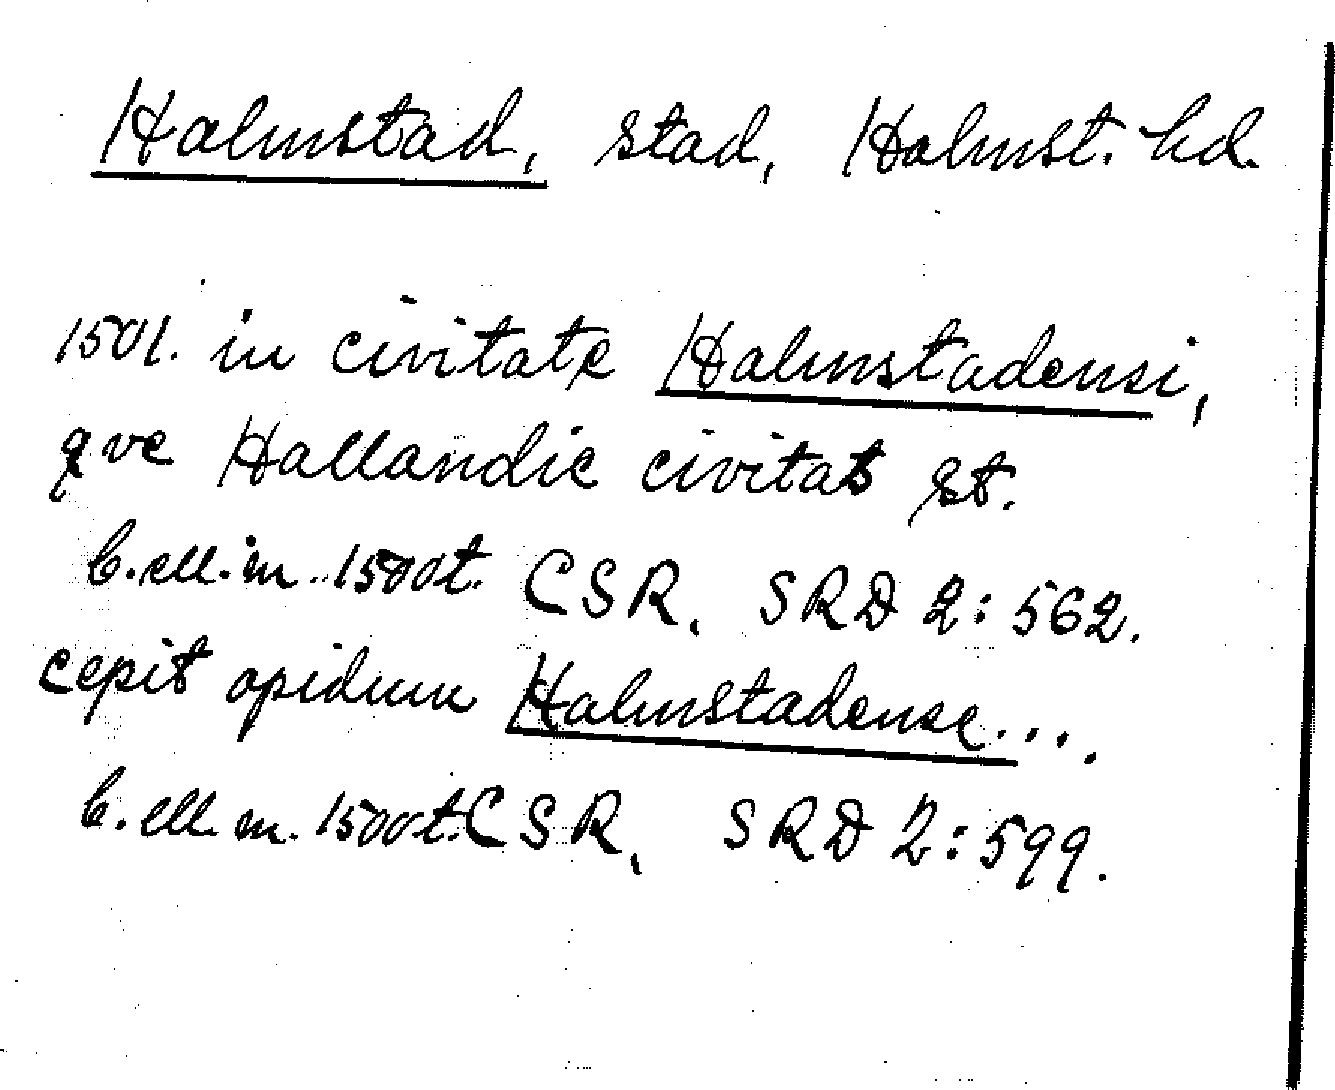 Halmstad, stad, Halmst. hd.
1501. in civitate Halmstadensi,
qve Hallandie civitas st.
b. ell. m. 1500t. CSR. SRD 2: 562.
cepit opidum Halmstadense....
b. ell. m. 1500t. CSR, SRD 2: 599.